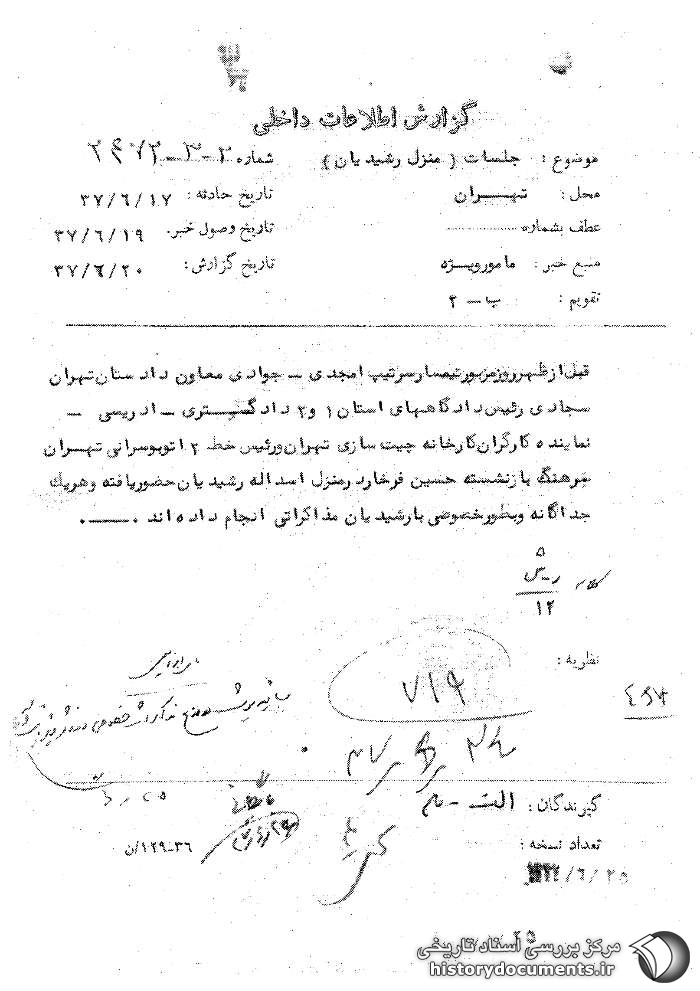 گزارش اطلاعات داخلی
موضوع : جلسات ( منزل رشیدیان )
شماره
محل : تهــران
تاریخ حادثه : ۳۷/۶/۱۷
عطف بشماره
تاریخ وصول خبر: ۳۷/۶/۱۹
منبع خبر : مامورویــژه
تاریخ گزارش: ۳۷/۶/۲۰
تقویم : ب ــ ۲
قبل ازظهرروزمزبورتیمسارسرتیپ امجدی ــ جوادی معاون دادستان تهران
سجادی رئیس دادگاههای استان ۱ و۲ دادگستــری ــ ادریسی ــ
نماینده کارگران کارخانه چیت سازی تهران ورئیس خط ۲ اتوبوسرانی تهــران
سرهنگ بازنشسته حسین فرخاردرمنزل اسداله رشیدیان حضوریافته وهریك
جداگانه وبطورخصوصی بارشیدیان مذاکراتی انجام داده اند ۰ــــ۰
۱۲
نظریه :
۷۱۹
گیرندگان :
تعداد نسخه :
۱۲۹-۳۶/ن
/۶/۲۵
مرکز بررسی اسناد تاریخی
historydocuments.ir